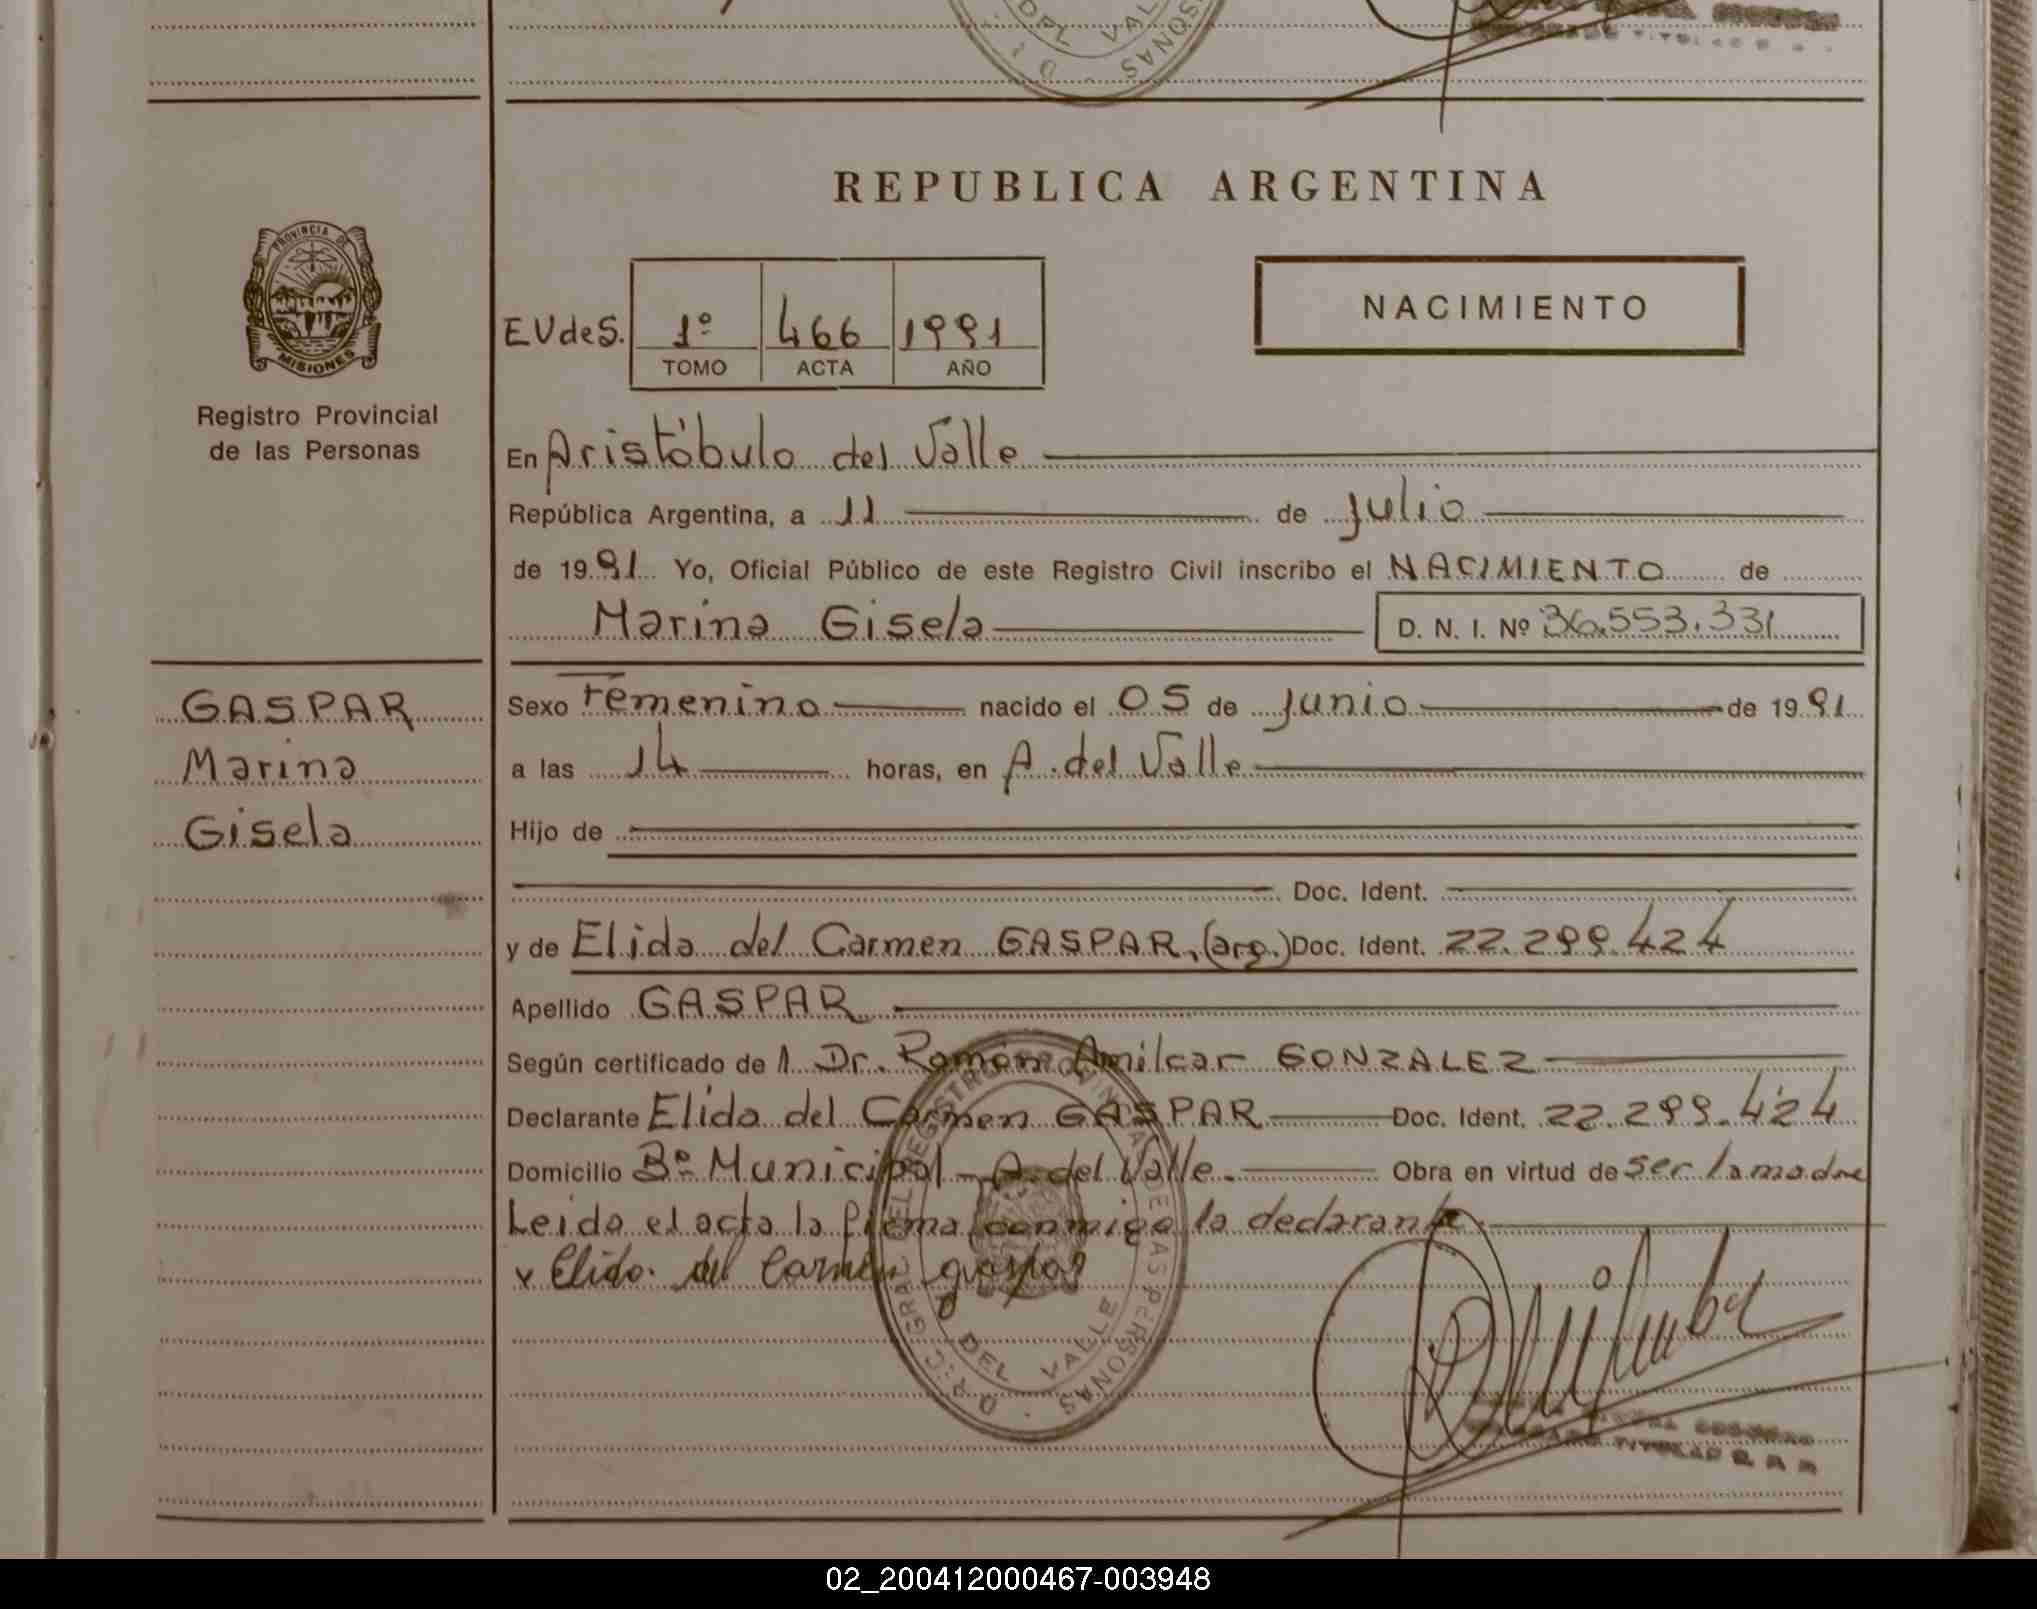 REPUBLICA ARGENTINA
PROVINCIA DE
MISIONES
Registro Provincial
de las Personas
EVdeS. 1º 466 1991
TOMO ACTA AÑO
NACIMIENTO
En Aristóbulo del Valle
República Argentina, a 11 de julio
de 1991 Yo, Oficial Público de este Registro Civil inscribo el NACIMIENTO de
Marina Gisela D. N. I. Nº 36.553.331
GASPAR
Marina
Gisela
Sexo Femenino nacido el 05 de junio de 1991
a las 14 horas, en A. del Valle
Hijo de
Doc. Ident.
y de Elida del Carmen GASPAR, (arg.) Doc. Ident. 22.299.424
Apellido GASPAR
Según certificado de l Dr. Ramón Amilcar GONZALEZ
Declarante Elida del Carmen GASPAR Doc. Ident. 22.299.424
Domicilio Bº Municipal - A. del Valle. Obra en virtud de ser la madre
Leida el acta la firma conmigo la declarante
x Elida del Carmen gaspar
DEL VALLE
DE LAS PERSONAS
02_200412000467-003948